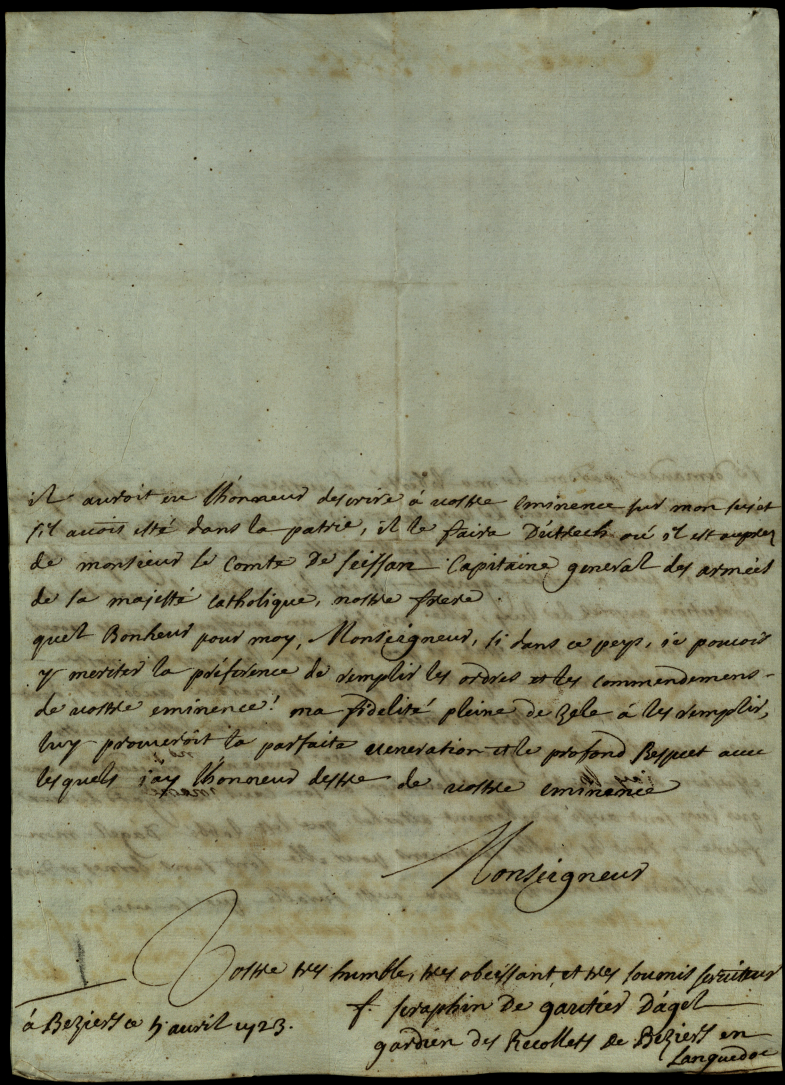 il auroit eu lhonneur descrire á vostre eminence sur mon sujet
sil auoit esté dans la patrie, il le faira Dutrech oú il est aupres
de monsieur le Comte de seissan Capitaine general des armées
de sa majesté catholique, nostre frere.
quel Bonheur pour moy, Monseigneur, si dans ce peys, ie pouvois
y meriter la préference de remplir les ordres et les commendemens
de vostre eminence! ma fidelité pleine de zele á les remplir,
luy prouueroit la parfaite veneration et le profond Respect auec
lesquels j'ay lhonneur destre de vostre eminence
Monseigneur
Vostre tres humble, tres obeissant, et tres soumis seruiteur
á Beziers ce 5 auril 1723.
f. seraphin De gautier Dágel
gardien des Recollets de Beziers en
Languedoc